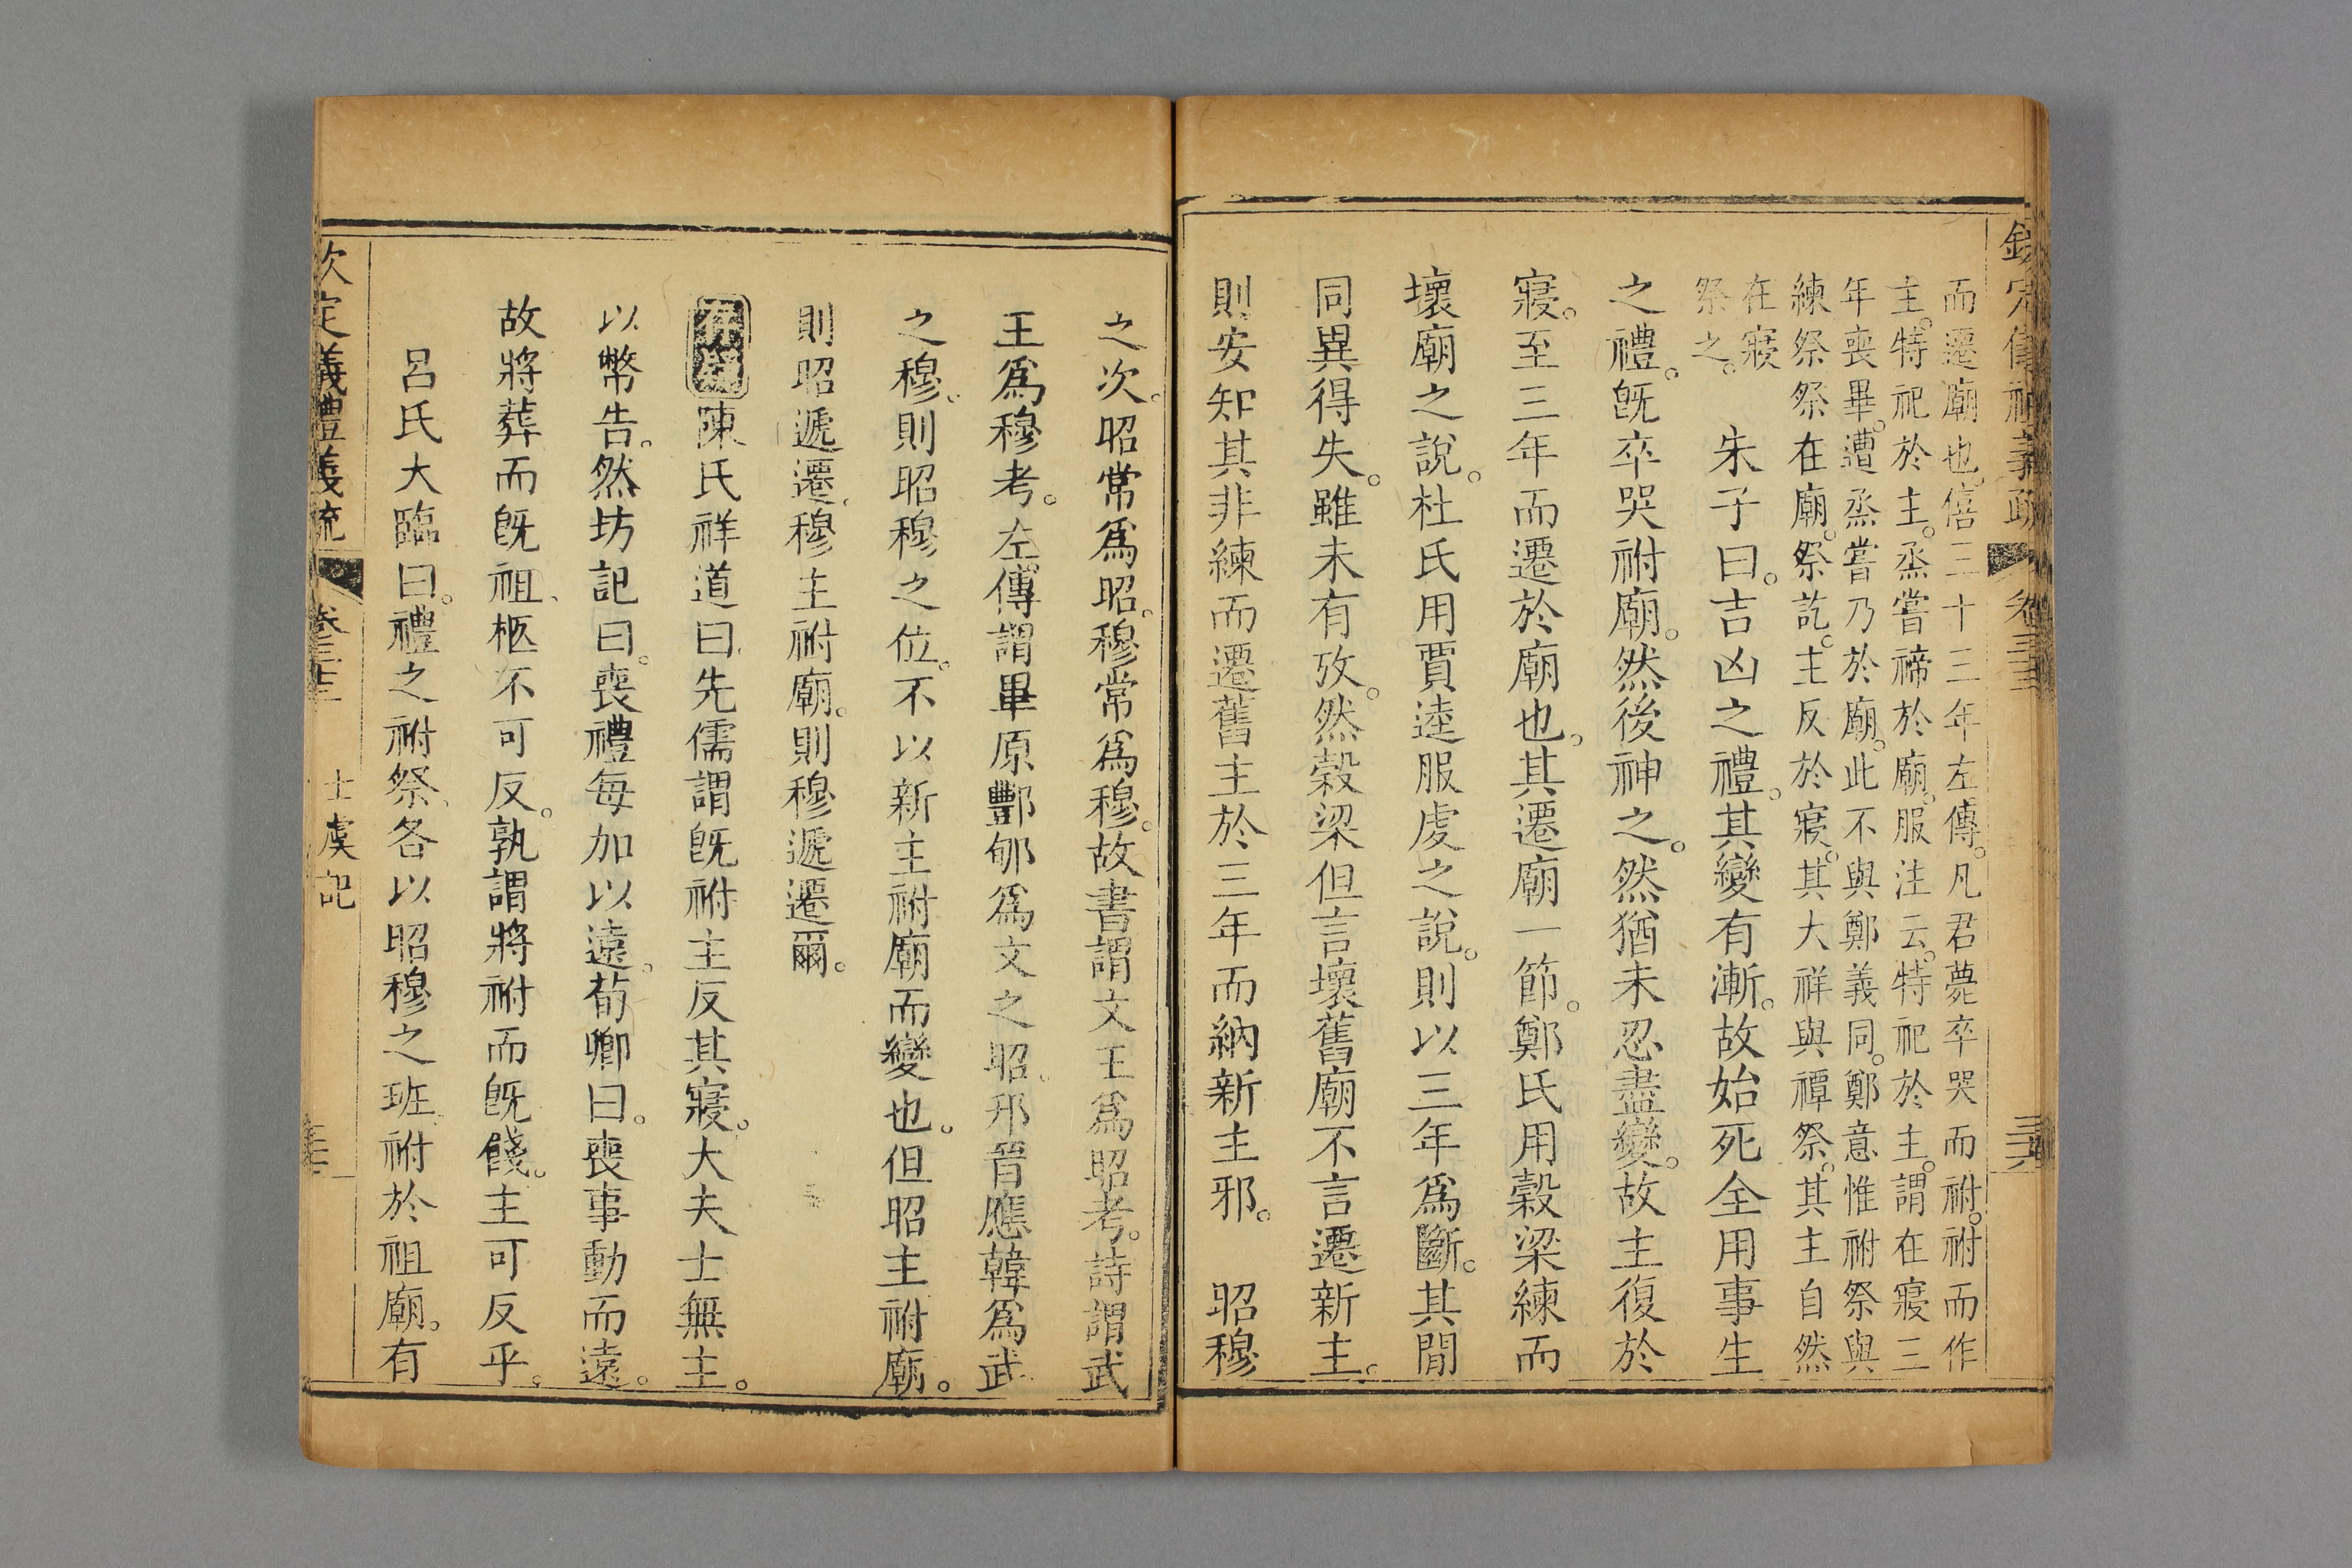 而遷廟也。僖三十三年左傳。凡君薨卒哭而祔。祔而作
主。特祀於主。烝嘗禘於廟。服注云。特祀於主。謂在寢三
年喪畢。遭烝嘗乃於廟。此不與鄭義同。鄭意惟祔祭與
練祭祭在廟。祭訖。主反於寢。其大祥與禫祭。其主自然
在寢
祭之。
朱子曰。吉凶之禮。其變有漸。故始死全用事生
之禮。旣卒哭祔廟。然後神之。然猶未忍盡變。故主復於
寢。至三年而遷於廟也。其遷廟一節。鄭氏用穀梁練而
壞廟之說。杜氏用賈逵服虔之說。則以三年爲斷。其閒
同異得失。雖未有攷。然穀梁但言壞舊廟不言遷新主。
則安知其非練而遷舊主於三年而納新主邪。 昭穆
之次。昭常爲昭。穆常爲穆。故書謂文王爲昭考。詩謂武
王爲穆考。左傳謂畢原酆郇爲文之昭。邘晉應韓爲武
之穆。則昭穆之位。不以新主祔廟而變也。但昭主祔廟。
則昭遞遷。穆主祔廟。則穆遞遷爾。
陳氏祥道曰。先儒謂旣祔主反其寢。大夫士無主。
以幣告。然坊記曰。喪禮每加以遠。荀卿曰。喪事動而遠。
故將葬而旣祖、柩不可反。孰謂將祔而旣餞。主可反乎。
呂氏大臨曰。禮之祔祭、各以昭穆之班、祔於祖廟。有
欽定儀禮義疏 卷三十三 士虞記